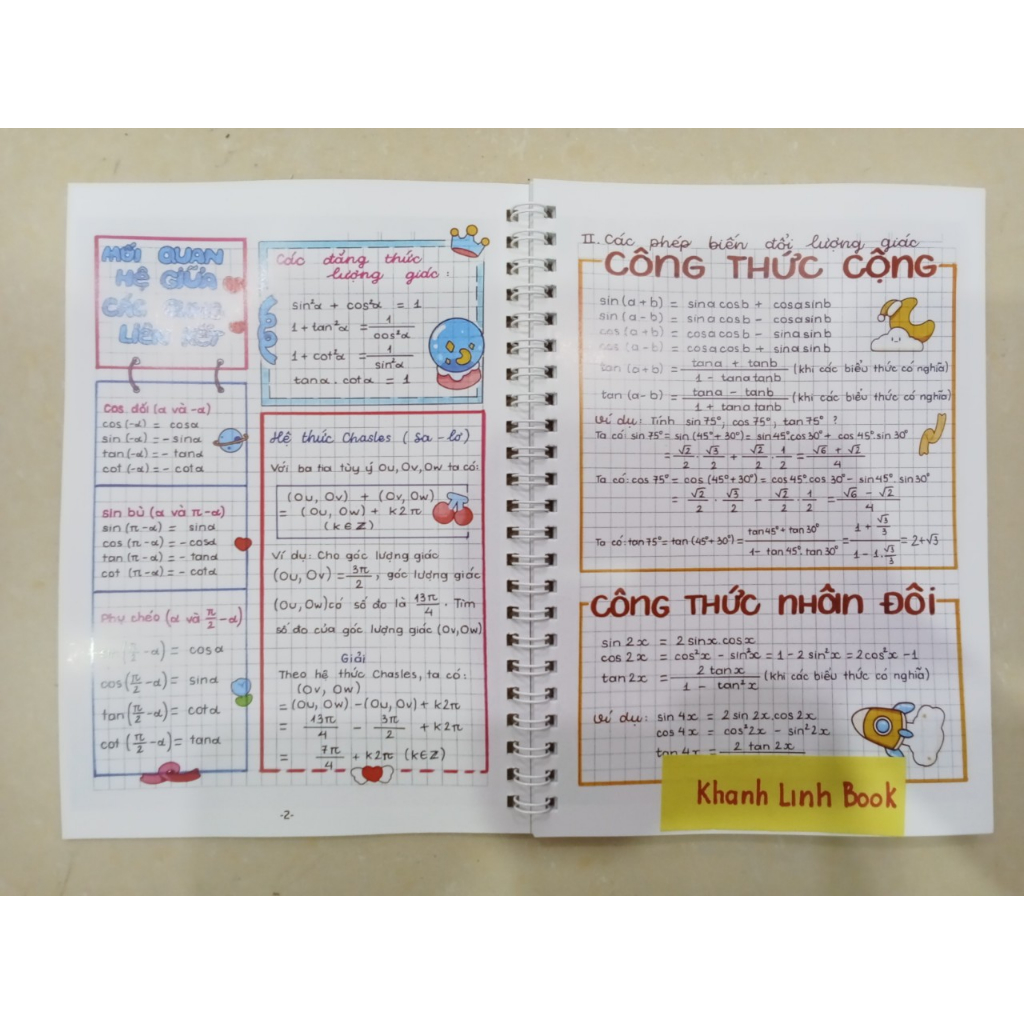 MỐI QUAN
HỆ GIỮA
CÁC CUNG
LIÊN KẾT
Cos đối (α và -α)
cos (-α) = cosα
sin (-α) = -sinα
tan (-α) = -tanα
cot (-α) = -cotα
Sin bù (α và π-α)
sin (π-α) = sinα
cos (π-α) = -cosα
tan (π-α) = -tanα
cot (π-α) = -cotα
Phụ chéo (α và π/2 -α)
sin(π/2 -α) = cosα
cos(π/2 -α) = sinα
tan(π/2 -α) = cotα
cot(π/2 -α) = tanα
Các đẳng thức
lượng giác :
sin²α + cos²α = 1
1 + tan²α = 1/cos²α
1 + cot²α = 1/sin²α
tanα . cotα = 1
Hệ thức Chasles ( Sa - lơ )
Với ba tia tùy ý Ou, Ov, Ow ta có:
(Ou, Ov) + (Ov, Ow)
= (Ou, Ow) + k2π
(k∈Z)
Ví dụ: Cho góc lượng giác
(Ou, Ov) = 3π/2 , góc lượng giác
(Ou, Ow) có số đo là 13π/4 . Tìm
số đo của góc lượng giác (Ov, Ow)
Giải
Theo hệ thức Chasles, ta có:
(Ov, Ow)
= (Ou, Ow) - (Ou, Ov) + k2π
= 13π/4 - 3π/2 + k2π
= 7π/4 + k2π (k∈Z)
-2-
II. Các phép biến đổi lượng giác
CÔNG THỨC CỘNG
sin (a + b) = sina cosb + cosa sinb
sin (a - b) = sina cosb - cosa sinb
cos (a + b) = cosa cosb - sina sinb
cos (a - b) = cosa cosb + sina sinb
tan (a + b) = (tana + tanb)/(1 - tana tanb) (khi các biểu thức có nghĩa)
tan (a - b) = (tana - tanb)/(1 + tana tanb) (khi các biểu thức có nghĩa)
Ví dụ: Tính sin 75°, cos 75°, tan 75° ?
Ta có: sin 75° = sin (45° + 30°) = sin 45° cos 30° + cos 45°. sin 30°
= √2/2 . √3/2 + √2/2 . 1/2 = (√6 + √2)/4
Ta có: cos 75° = cos (45° + 30°) = cos 45° cos 30° - sin 45°. sin 30°
= √2/2 . √3/2 - √2/2 . 1/2 = (√6 - √2)/4
Ta có: tan 75° = tan (45° + 30°) = (tan 45° + tan 30°)/(1 - tan 45°. tan 30°) = (1 + √3/3)/(1 - 1.√3/3) = 2+√3
CÔNG THỨC NHÂN ĐÔI
sin 2x = 2 sinx. cosx
cos 2x = cos²x - sin²x = 1 - 2 sin²x = 2cos²x - 1
tan 2x = 2 tan x/(1 - tan²x) (khi các biểu thức có nghĩa)
Ví dụ: sin 4x = 2 sin 2x. cos 2x
cos 4x = cos²2x - sin²2x
tan 4x = 2 tan 2x
Khanh Linh Book